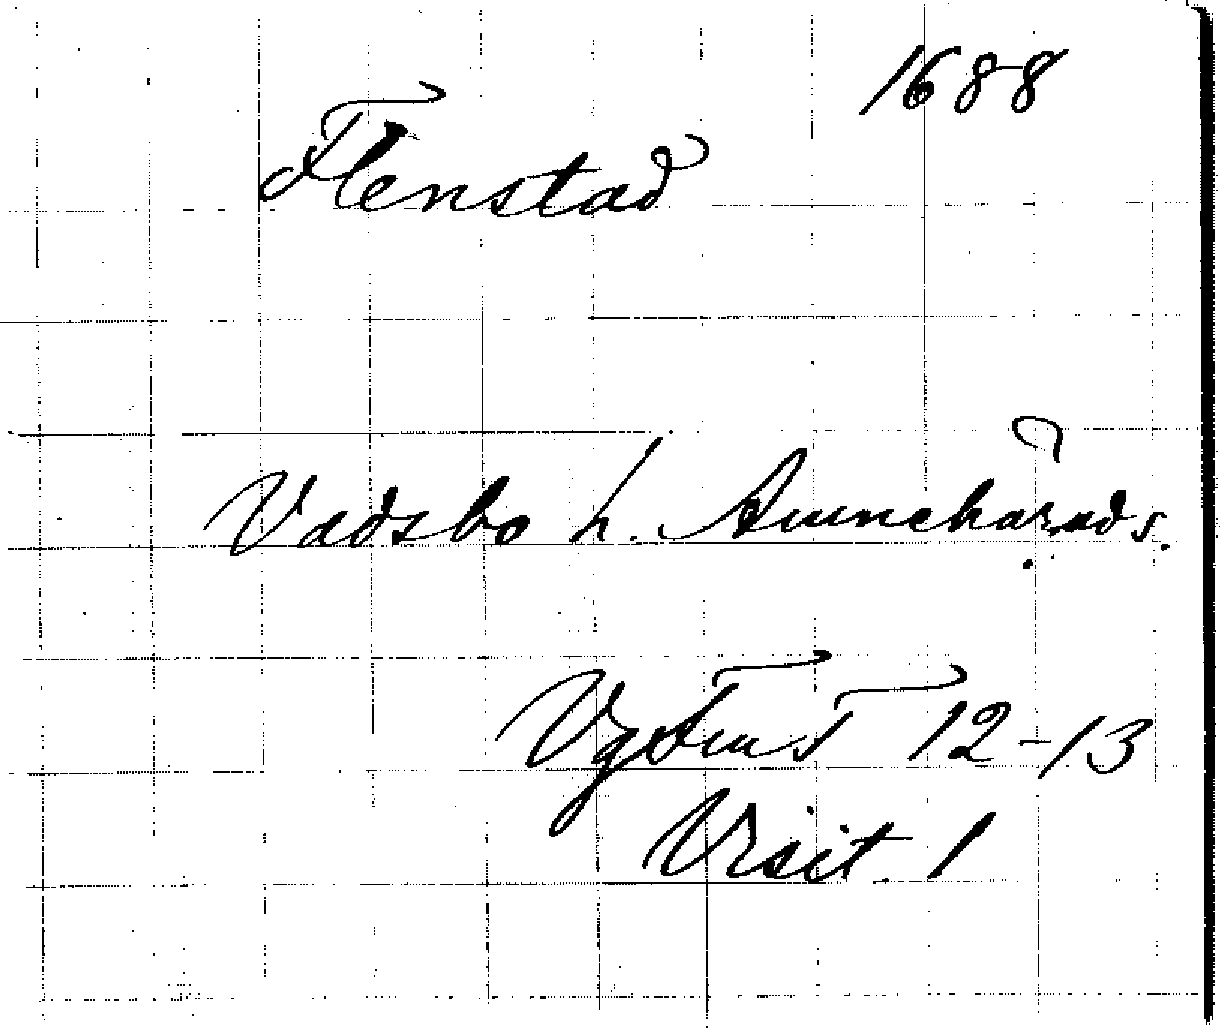 1688
Flenstad
Vadsbo h. Amnehärads.
VgFmT 12-13
Visit. 1